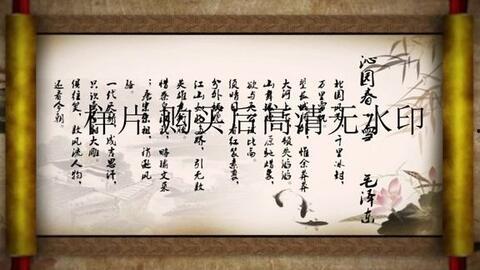 沁园春 雪
毛泽东
北国风光,千里冰封,
万里雪飘。
望长城内外,惟余莽莽
大河上下,顿失滔滔。
山舞银蛇,原驰蜡象,
欲与天公试比高。
须晴日,看红装素裹,
分外妖娆。
江山如此多娇,引无数
英雄竞折腰。
惜秦皇汉武,略输文采
;唐宗宋祖,稍逊风
骚。
一代天骄,成吉思汗,
只识弯弓射大雕
俱往矣,数风流人物,
还看今朝。
样片 购买后高清无水印